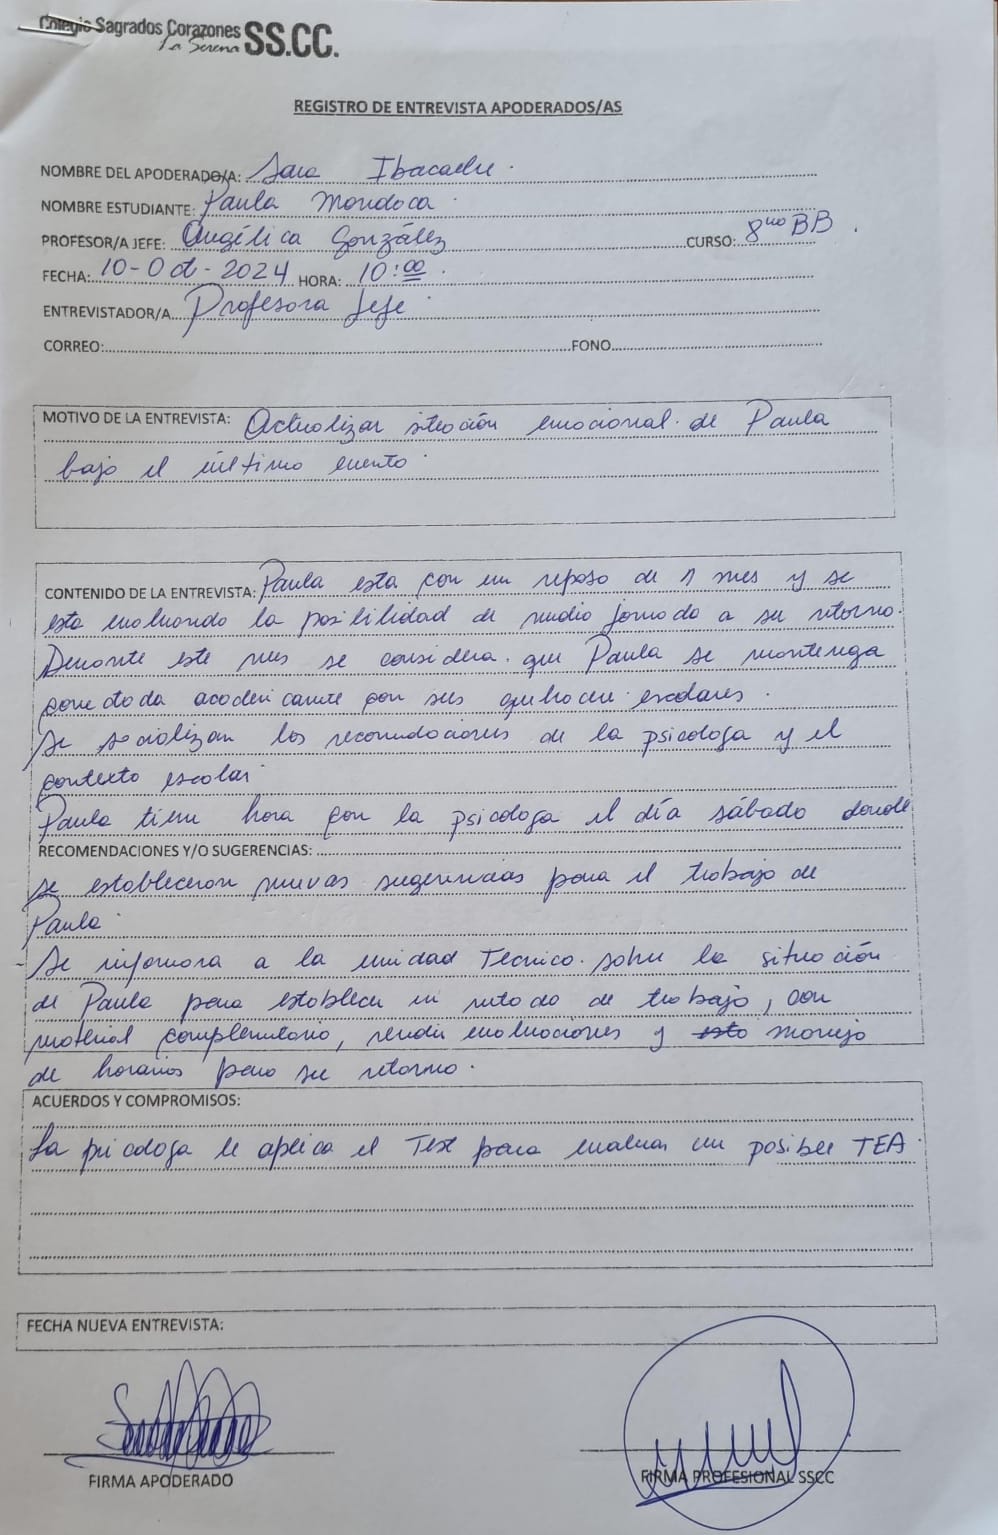 Colegio Sagrados Corazones
La Serena SS.CC.
REGISTRO DE ENTREVISTA APODERADOS/AS
NOMBRE DEL APODERADO/A: Sara Ibacache.
NOMBRE ESTUDIANTE: Paula Mondoca.
PROFESOR/A JEFE: Angélica González CURSO: 8vo BB.
FECHA: 10-Oct-2024 HORA: 10:00.
ENTREVISTADOR/A Profesora Jefe.
CORREO: FONO
MOTIVO DE LA ENTREVISTA: Actualizar situación emocional de Paula
bajo el último evento.
CONTENIDO DE LA ENTREVISTA: Paula esta con un reposo de 1 mes y se
esta evaluando la posibilidad de media jornada a su retorno.
Durante este mes se considera que Paula se mantenga
conectada academicamente con sus quehacer escolares.
Se socializan las recomendaciones de la psicologa y el
contexto escolar.
Paula tiene hora con la psicologa el día sábado donde
RECOMENDACIONES Y/O SUGERENCIAS:
se estableceran nuevas sugerencias para el trabajo de
Paula.
- Se informara a la unidad Tecnico sobre la situación
de Paula para establecer un metodo de trabajo, con
material complementario, rendir evaluaciones y esto manejo
de horarios para su retorno.
ACUERDOS Y COMPROMISOS:
La psicologa le aplica el Test para evaluar un posible TEA.
FECHA NUEVA ENTREVISTA:
FIRMA APODERADO FIRMA PROFESIONAL SSCC